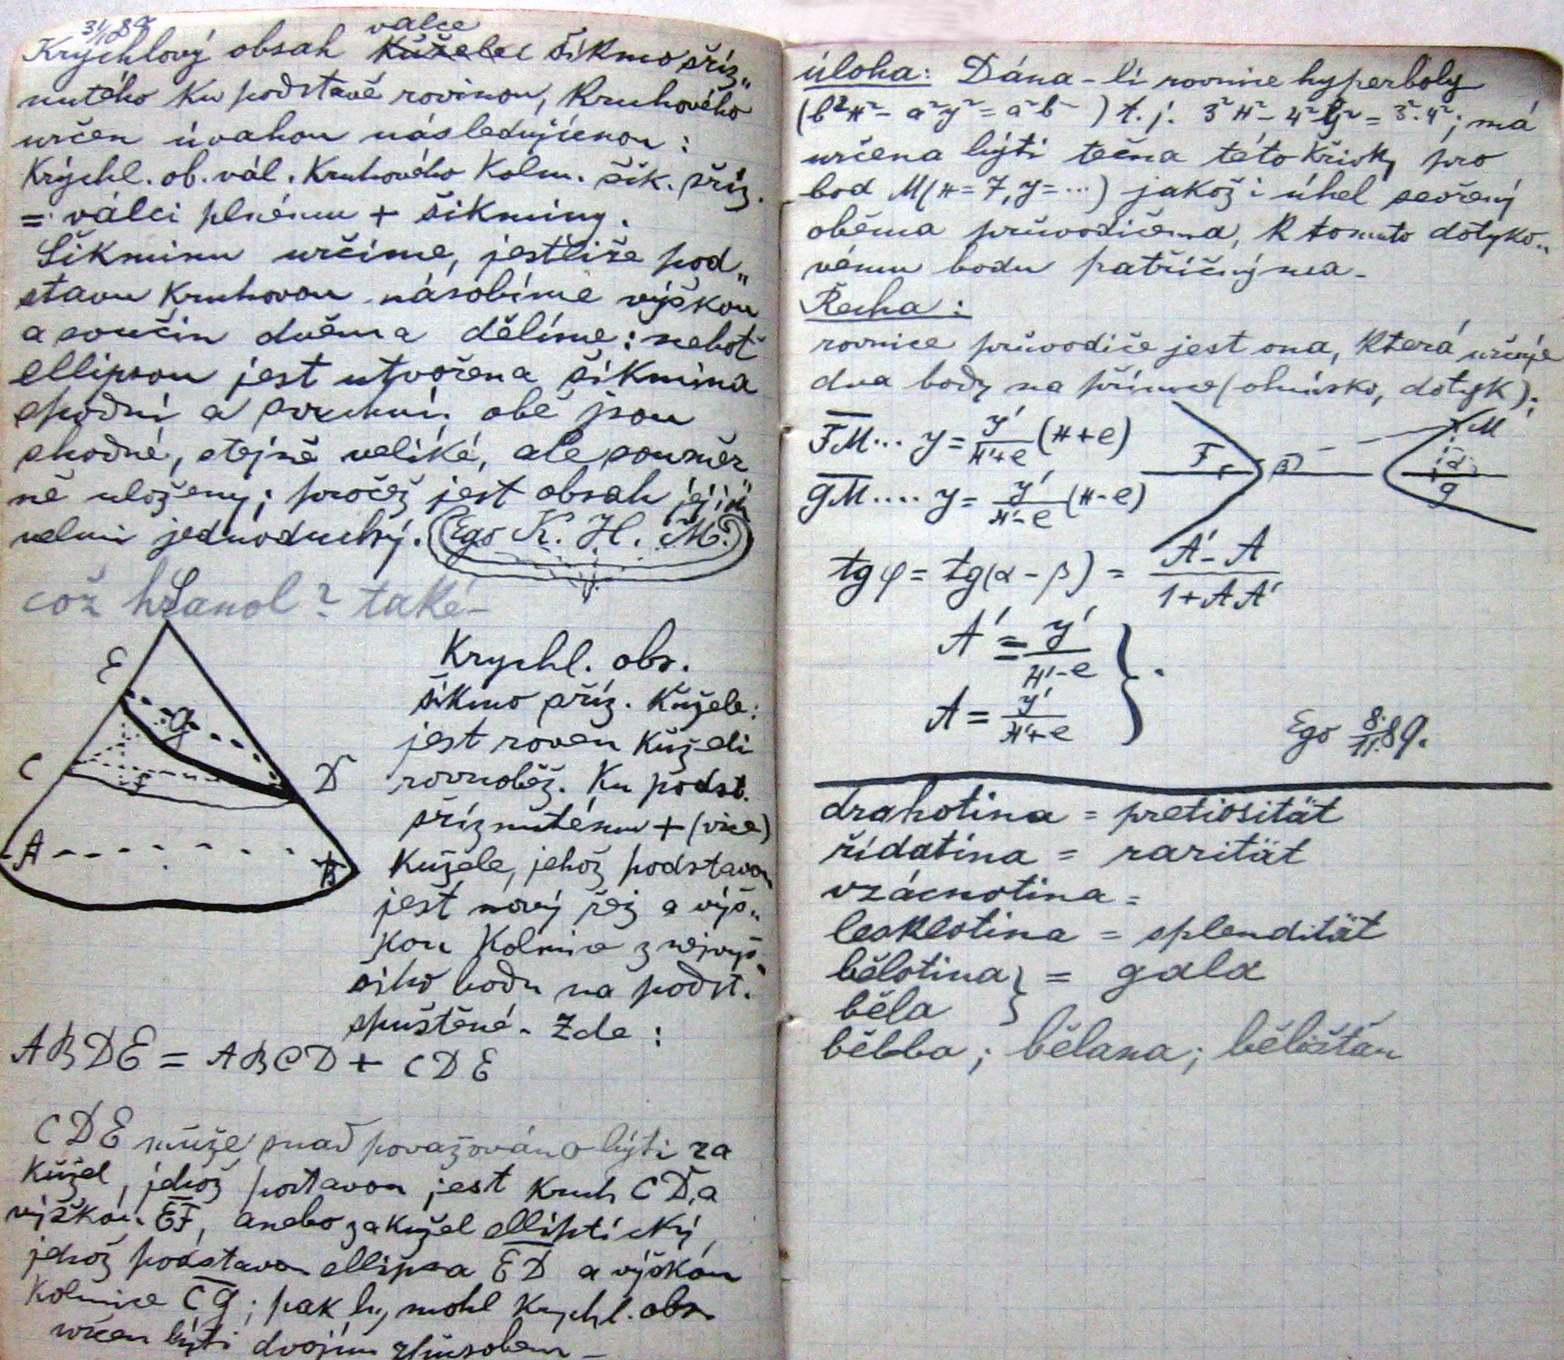 31/10 89
válce
Krychlový obsah kužele šikmo říz„
nutého ku podstavě rovinou, kruhového
určen úvahou následujícnou :
Krychl. ob. vál. Kruhového Kolm. šik. říz.
= válci plnému + šikminy.
Šikminu určíme, jestliže pod„
stavu kruhovou násobíme výškou
a součin dvěma dělíme: neboť
ellipsou jest utvořena šikmina
spodní a svrchní; obě jsou
shodné, stejně veliké, ale souměr„
ně uloženy; pročež jest obsah jejich
velmi jednoduchý. Ego K. H. M.
což ? také-
E
G
C
F
D
A
B
Krychl. obs.
šikmo příz. Kužele:
jest roven Kuželi
rovnoběž. Ku podst.
příznutému + (více)
Kužele, jehož podstavou
jest nový řez a výš„
kou Kolmice z nejvyš„
šího bodu na podst.
spuštěné. Zde :
ABDE = ABCD + CDE
CDE může snad považováno býti za
Kužel, jehož postavou jest kruh CD, a
výškou EF, anebo za kužel elliptický,
jehož podstavou ellipsa ED a výškou
Kolmice CG; pak by mohl krychl. obs.
určen býti dvojím způsobem –
úloha: Dána-li rovnice hyperboly
(b²x² - a²y² = a²b² ) t. j. 3²x² - 4²y² = 3².4²; má
určena býti tečna této křivky pro
bod M(x = 7, y = ...) jakož i úhel sevřený
oběma průvodičema, k tomuto dotyko„
vému bodu patřičnýma.
Řecha :
rovnice průvodiče jest ona, která určuje
dva body na přímce (ohnisko, dotyk);
FM... y = y'/x'+e (x+e)
GM.... y = y'/x'-e (x-e)
F
M
G
tg φ = tg(α - β) = A'-A / 1+AA'
A' = y'/x'-e
A = y'/x'+e
Ego 8./11.89.
drahotina = pretiosität
řídatina = rarität
vzácnotina =
lesklotina = splendität
bělotina } = gala
běla
běbba ; bělana ; bělištan